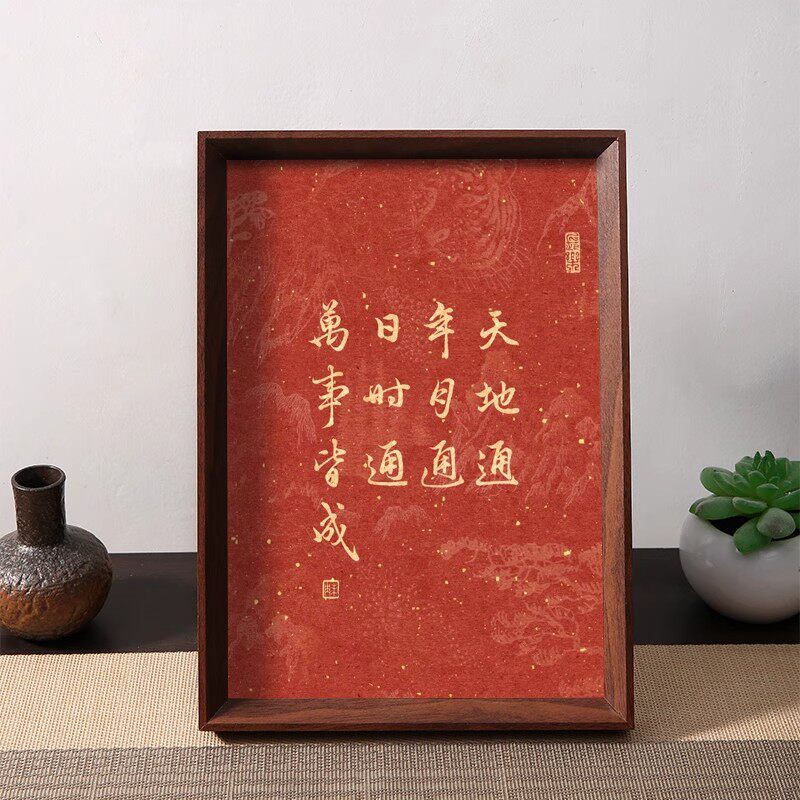 天地通
年月通
日时通
萬事皆成